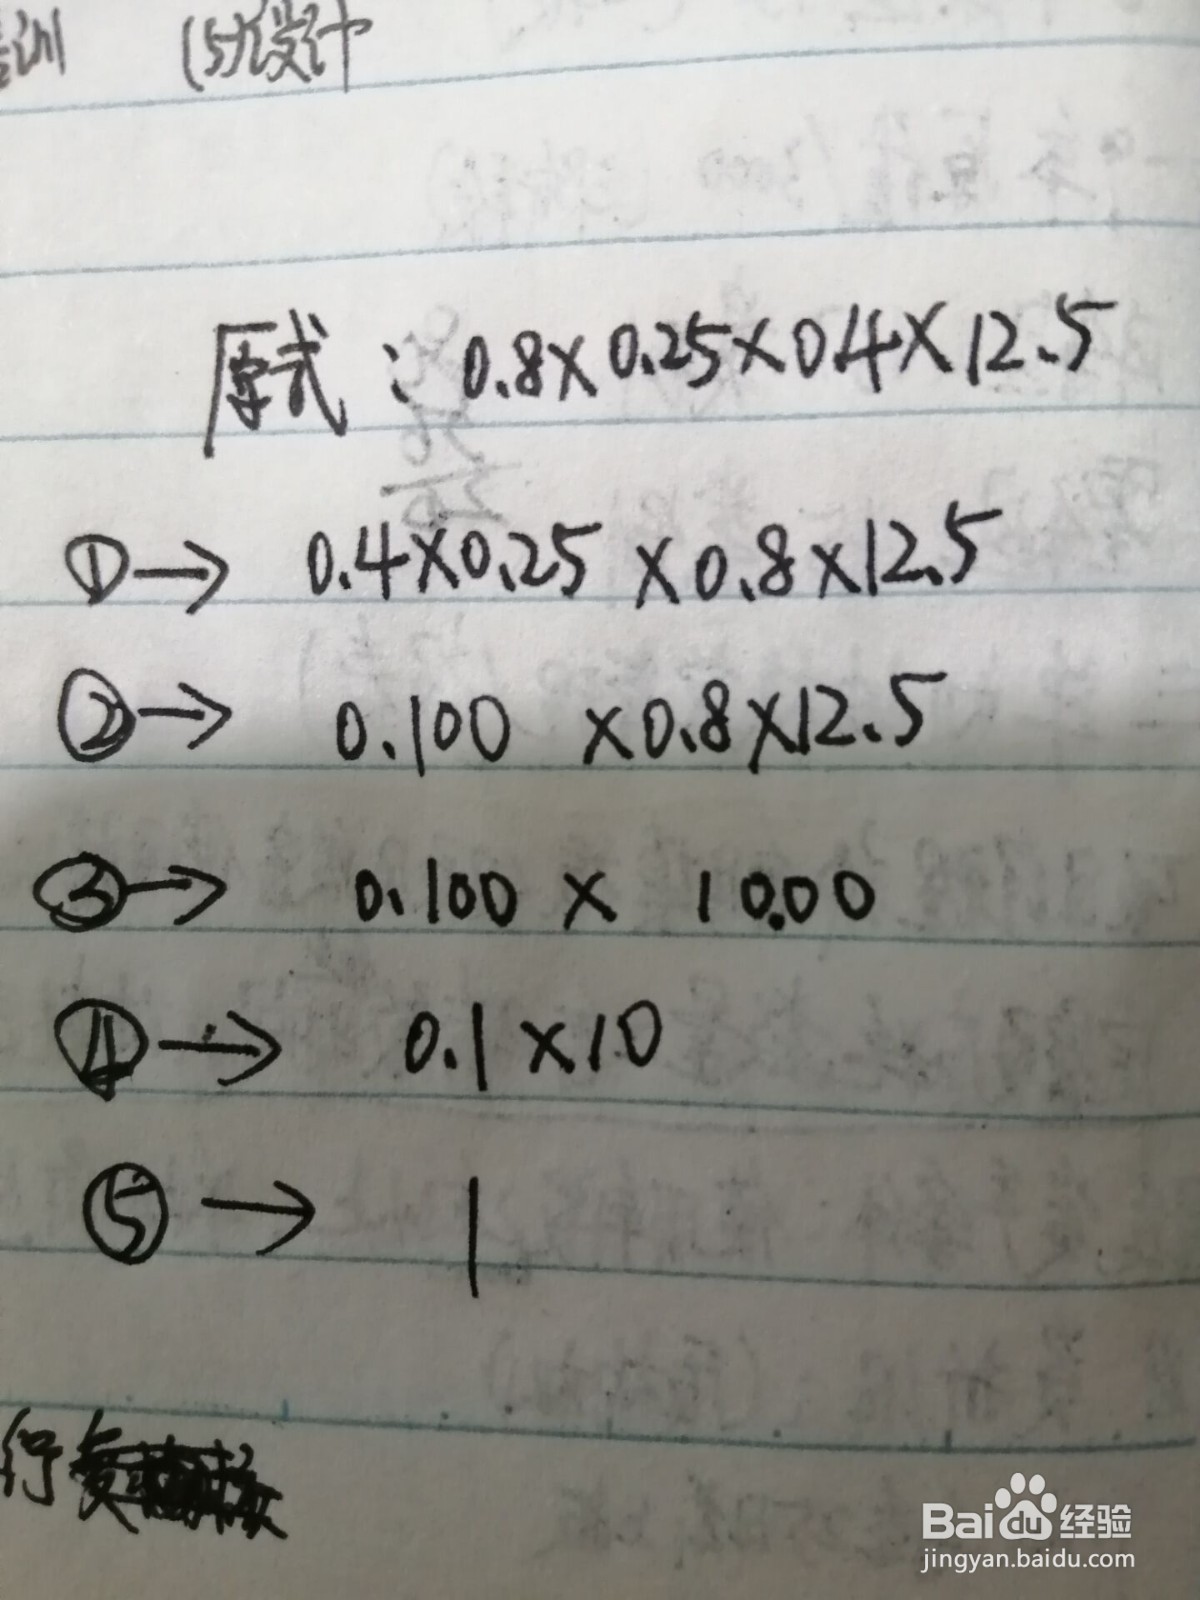 训 (5)设计
原式：0.8×0.25×0.4×12.5
①→ 0.4×0.25×0.8×12.5
②→ 0.100×0.8×12.5
③→ 0.100×10.00
④→ 0.1×10
⑤→ 1
行
Baidu经验
jingyan.baidu.com